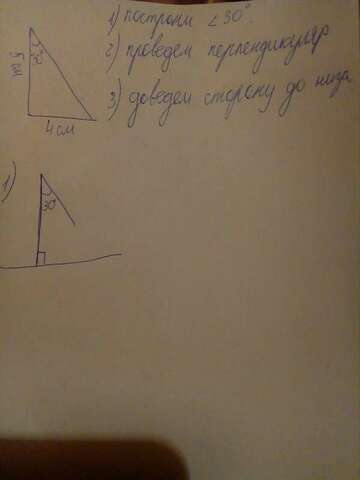 1) построим ∠30°.
2) проведем перпендикуляр
3) доведем сторону до низа
30°
5 см
4 см
1)
30°